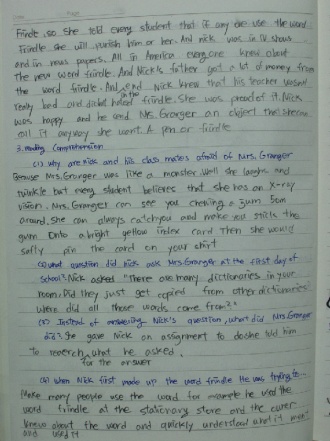 Frindle. so She told every student that if any one use the word
Frindle she will punish him or her. And nick was in TV shows
and in news papers. All in America every one knew about
The new word frindle. And Nick's father got a lot of money from
the word frindle. And end Nick knew that his teacher wasn't
really bad and didn't hated frindle. She was proud of it. Nick
was happy and he and Ms. Granger an object the
call it anyway she want. A pen or frindle
3. Reading Comprehension
(1) why are nick and his class mates afraid of Mrs. Granger
Because Mrs. Granger was like a monster. Well she laughs and
twinkle but every student believes that she has an x-ray
vision. Mrs. Granger can see you chewing a gum 50m
around. She can always catch you and make you stick the
gum onto a bright yellow index card Then she would
safty pin the card on your shirt
(2) what question did nick ask Mrs. Granger at the first day of
school? Nick asked "There are many dictionaries in your
room. Did they just get copied from other dictionaries
where did all those words come from?"
(3) Instead of answering Nick's question, what did Mrs. Granger
did? She gave Nick an assignment to do. She told him
To research what he asked.
for the answer
(4) when Nick first made up the word frindle He was trying to...
Make many people use the word for example he used the
word frindle at the stationary store and the
knew about the word and quickly understand what it mean
and used it